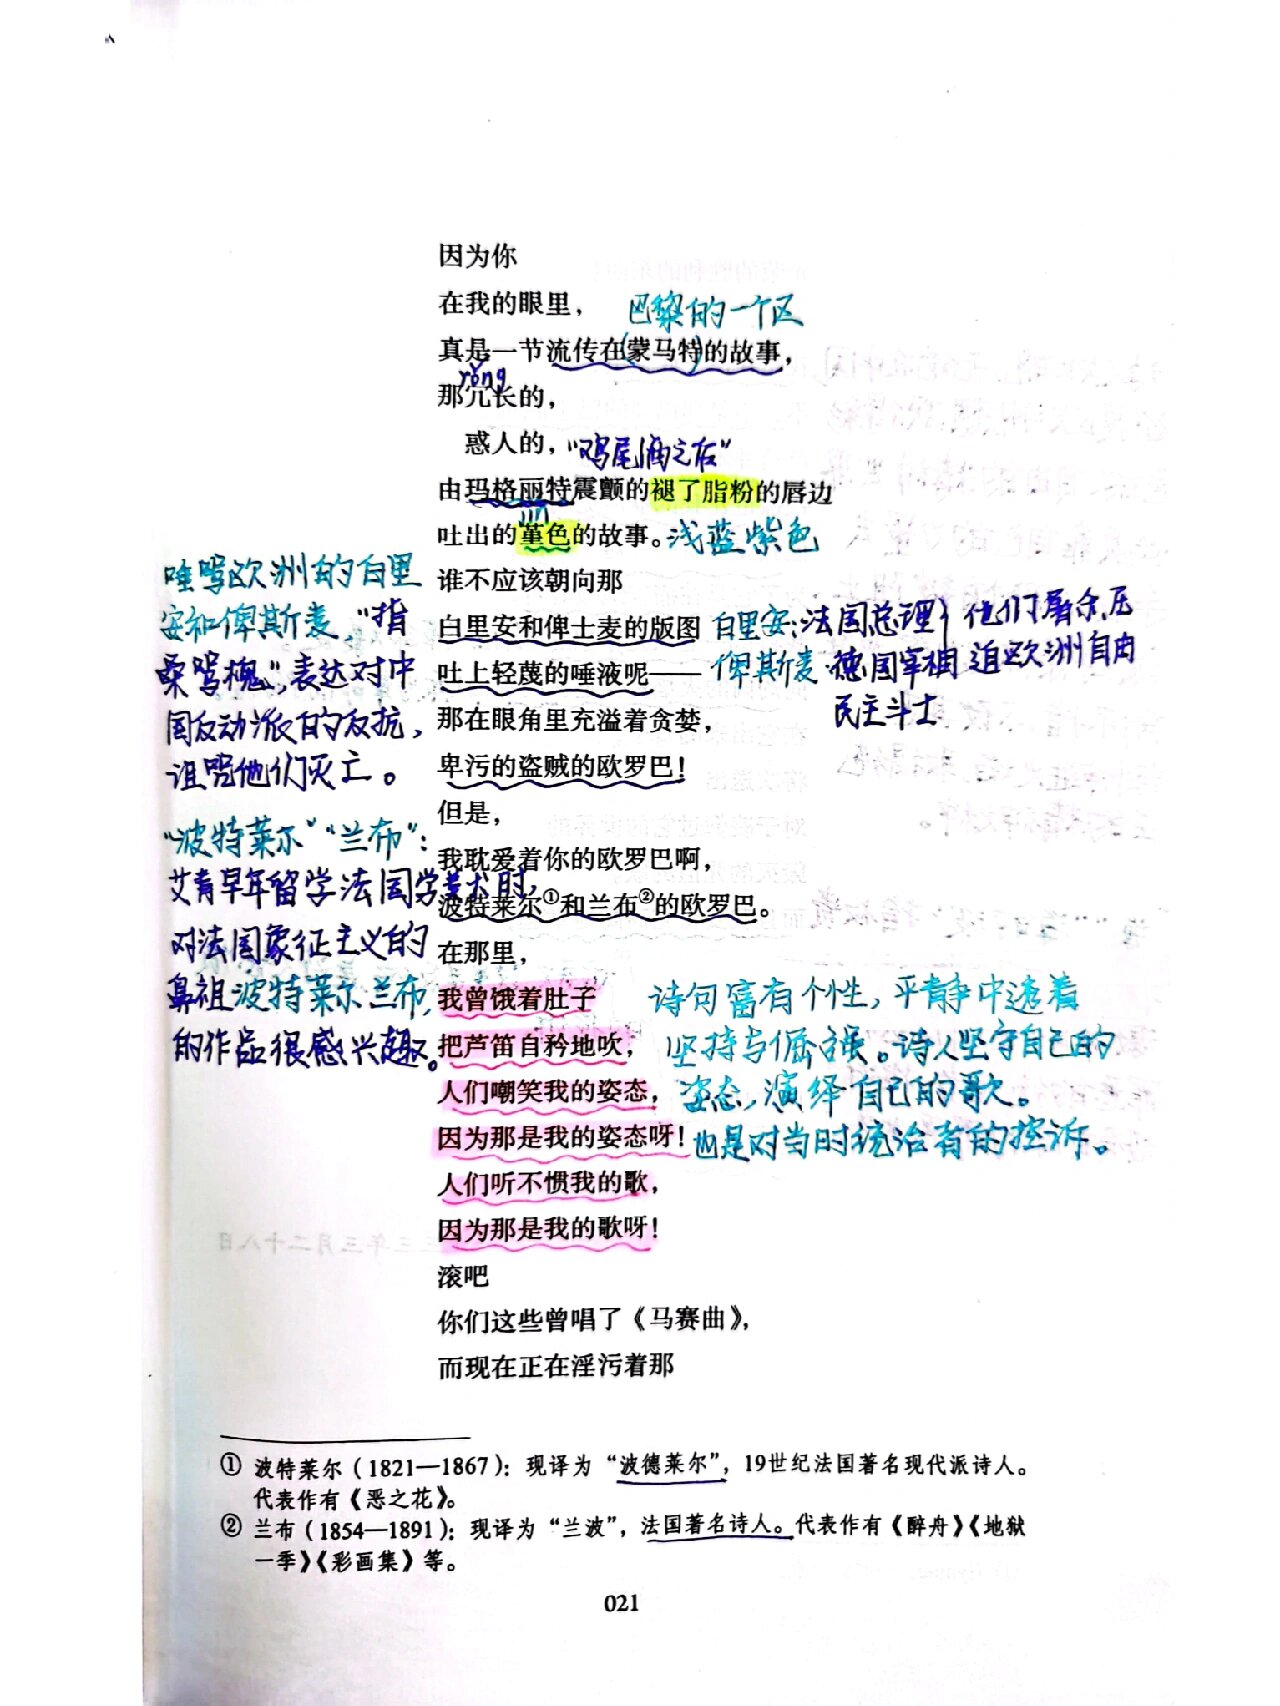 因为你
在我的眼里，
巴黎的一个区
真是一节流传在(蒙马特)的故事，
rǒng
那冗长的，
惑人的，
“鸡尾酒之后”
由玛格丽特震颤的褪了脂粉的唇边
吐出的堇色的故事。
浅蓝紫色
谁不应该朝向那
白里安和俾士麦的版图
吐上轻蔑的唾液呢——
那在眼角里充溢着贪婪，
卑污的盗贼的欧罗巴！
白里安：法国总理
俾斯麦：德国宰相
他们屠杀、压
迫欧洲自由
民主斗士
唾骂欧洲的白里
安和俾斯麦，“指
桑骂槐”，表达对中
国反动派的反抗，
诅咒他们灭亡。
但是，
我耽爱着你的欧罗巴啊，
波特莱尔①和兰布②的欧罗巴。
“波特莱尔”“兰布”：
艾青早年留学法国学美术时，
对法国象征主义的
鼻祖波特莱尔、兰布，
的作品很感兴趣。
在那里，
我曾饿着肚子
把芦笛自矜地吹，
人们嘲笑我的姿态，
因为那是我的姿态呀！
人们听不惯我的歌，
因为那是我的歌呀！
诗句富有个性，平静中透着
坚持与倔强。诗人坚守自己的
姿态，演绎自己的歌。
也是对当时统治者的控诉。
滚吧
你们这些曾唱了《马赛曲》，
而现在正在淫污着那
① 波特莱尔（1821—1867）：现译为“波德莱尔”，19世纪法国著名现代派诗人。
代表作有《恶之花》。
② 兰布（1854—1891）：现译为“兰波”，法国著名诗人。代表作有《醉舟》《地狱
一季》《彩画集》等。
021